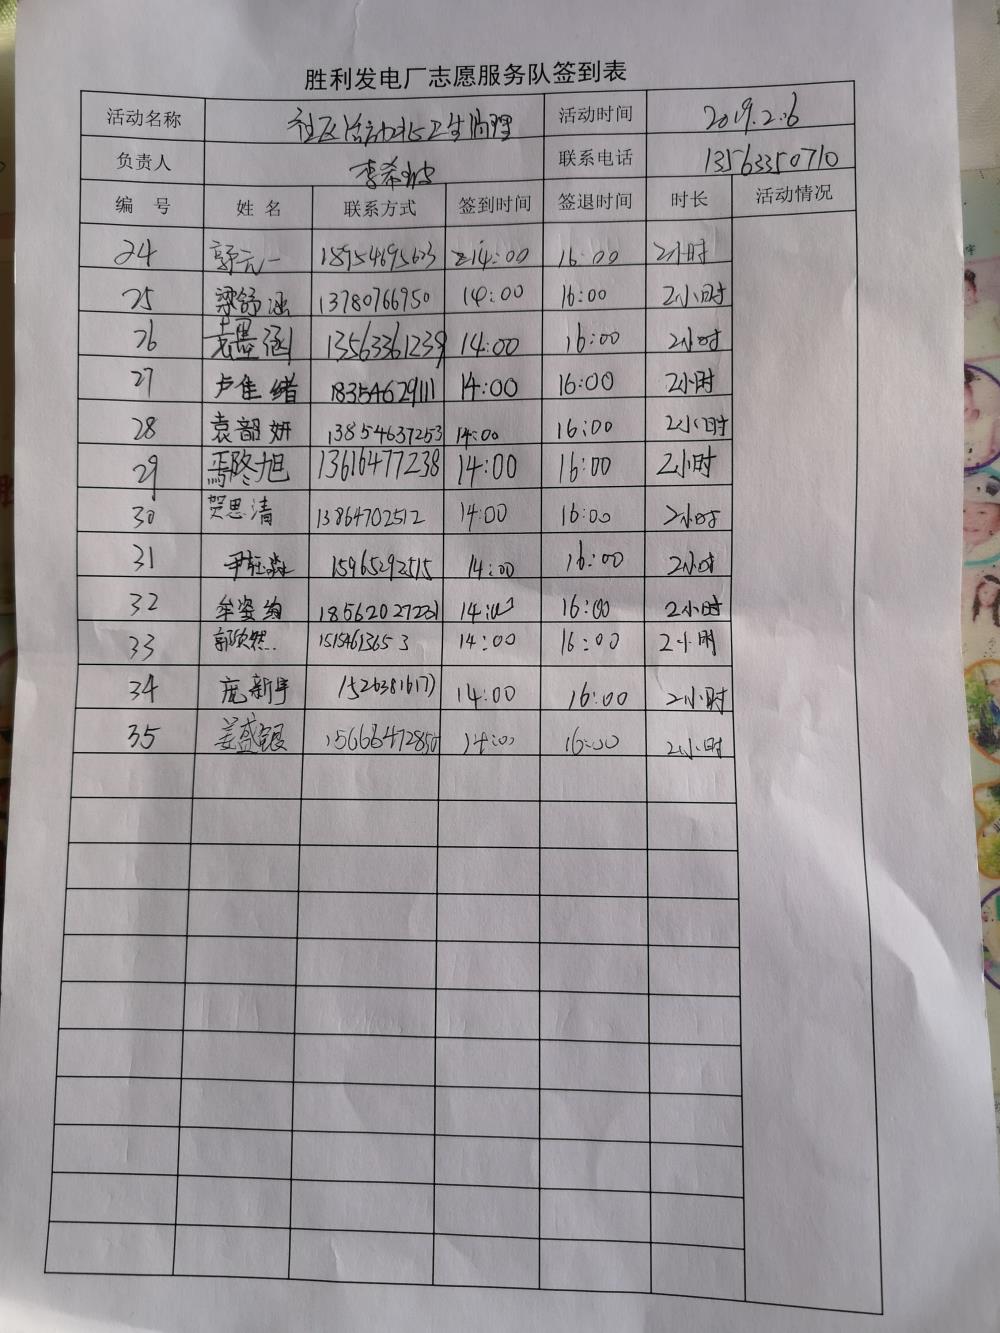 胜利发电厂志愿服务队签到表
活动名称 社区活动北卫生清理 活动时间 2019.2.6
负责人 李希 联系电话 13563350710
编 号 姓 名 联系方式 签到时间 签退时间 时长 活动情况
24 郭元一 18954695623 14:00 16:00 2小时
25 梁舒涵 13780766950 14:00 16:00 2小时
26 袁墨涵 13563361239 14:00 16:00 2小时
27 卢佳绪 18354629111 14:00 16:00 2小时
28 袁韶妍 13854637253 14:00 16:00 2小时
29 旭 13616477238 14:00 16:00 2小时
30 贺思清 13864702512 14:00 16:00 2小时
31 尹钰淼 15965292515 14:00 16:00 2小时
32 牟姿绚 14:00 16:00 2小时
33 郭欣然 1515461365 3 14:00 16:00 2小时
34 庞新宇 14:00 16:00 2小时
35 姜盛银 15668472850 14:00 16:00 2小时